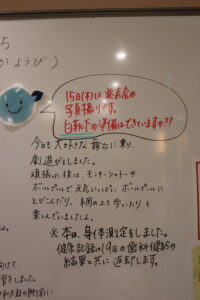 5
かようび)
15日(木)は発表会の
写真撮りです。
白靴下の準備はできていますか??
今日も大好きな舞台に乗り、
劇遊びをしました。
頑張った後は、モンキーシャトーや
ボールプールで元気いっぱい。ボールプールに
とびこんだり、手網の上を歩いたりと
楽しんでいましたよ。
※本日、身体測定をしました。
健康記録は19日の歯科健診の
結果と共に返却します。
向けて、
習をしました。